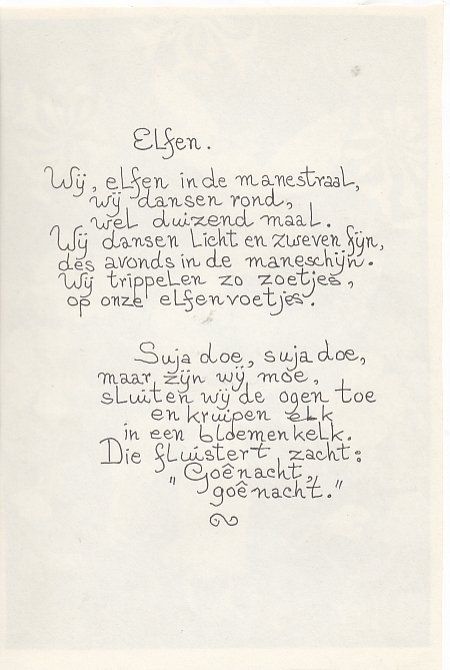 Elfen.
Wij, elfen in de manestraal,
wij dansen rond,
wel duizend maal.
Wij dansen licht en zweven fijn,
des avonds in de maneschijn.
Wij trippelen zo zoetjes,
op onze elfenvoetjes.
Suja doe, suja doe,
maar zijn wij moe,
sluiten wij de ogen toe
en kruipen elk
in een bloemenkelk.
Die fluistert zacht:
„Goênacht,
goênacht."